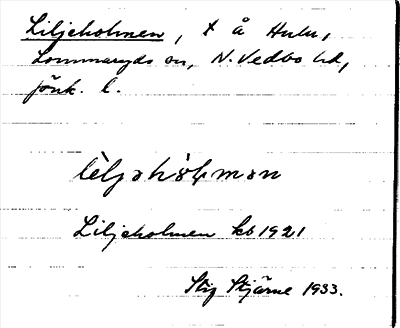 Liljeholmen, t å Hulu,
Lommaryds sn, N. Vedbo hd,
Jönk. l.
Liljeholmen kb 1921
Stig Stjärne 1933.